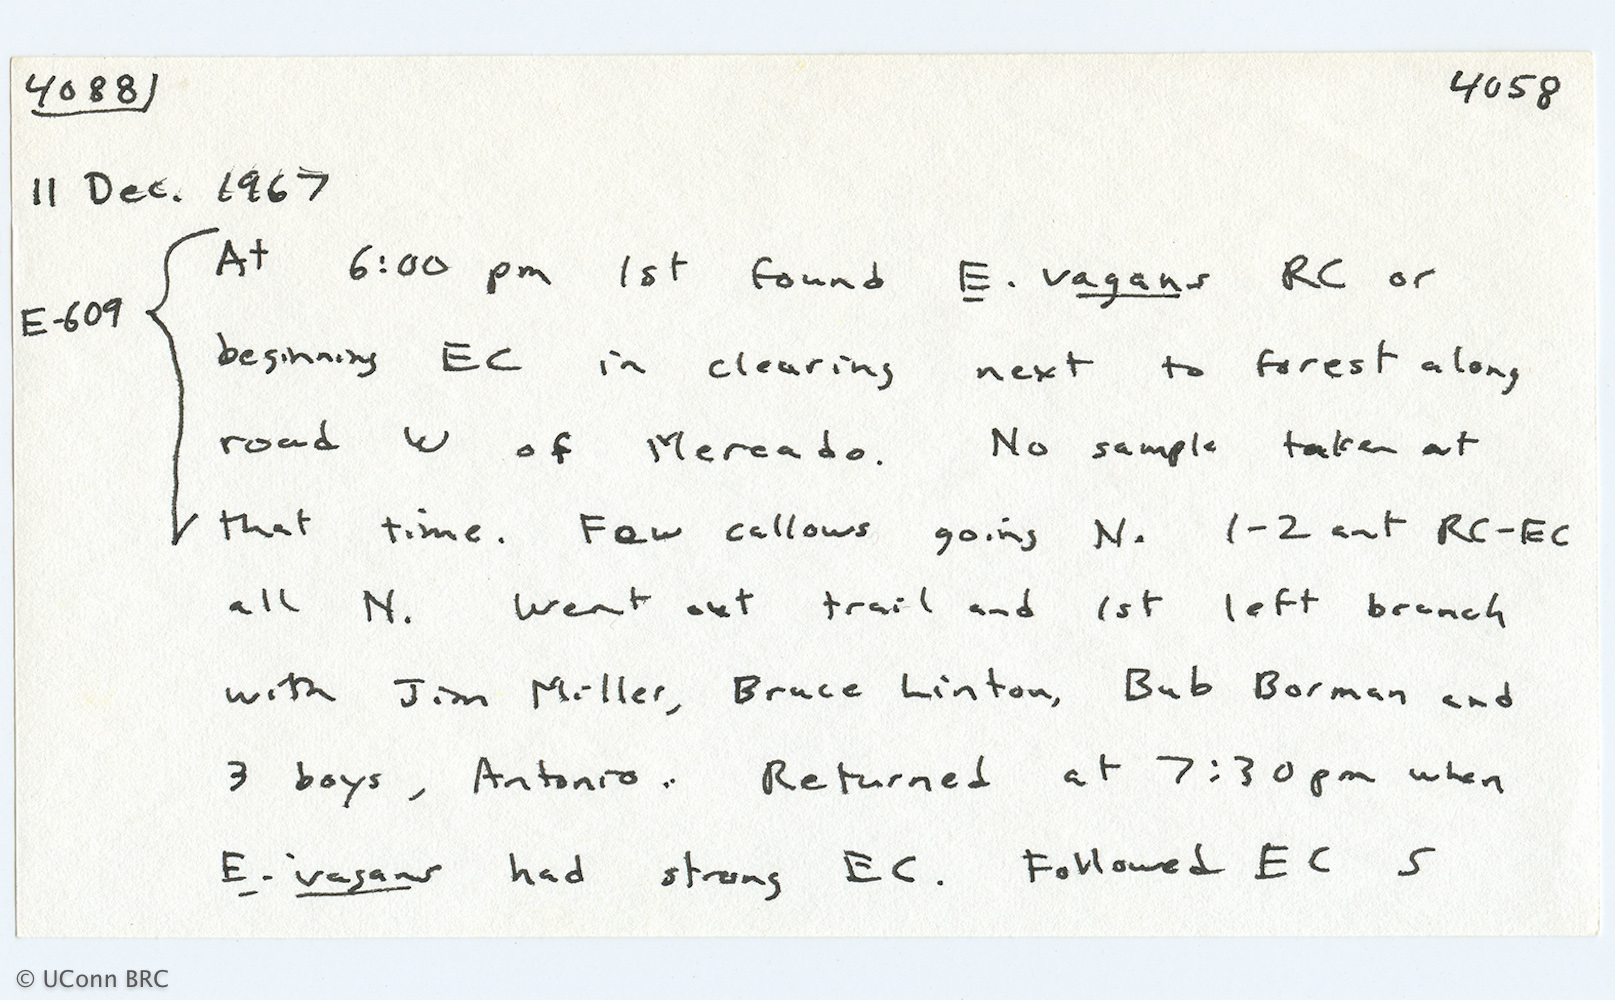 4088) 4058
11 Dec. 1967
At 6:00 pm 1st found E. vagans RC or
E-609
beginning EC in clearing next to forest along
road W of Mercado. No sample taken at
that time. Few callows going N. 1-2 ant RC-EC
all N. Went out trail and 1st left branch
with Jim Miller, Bruce Linton, Bub Borman and
3 boys, Antonio. Returned at 7:30 pm when
E. vagans had strong EC. Followed EC S
© UConn BRC